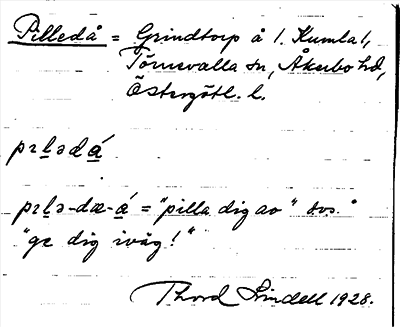 Pilledå = Grindtorp å 1. Kumla l,
Törnevalla sn, Åkerbo hd,
Östergötl. l.
pɪḻədá̱
pɪḻə-dæ-á̱ = "pilla dig av" dvs."
"ge dig iväg!"
Thord Lindell 1928.